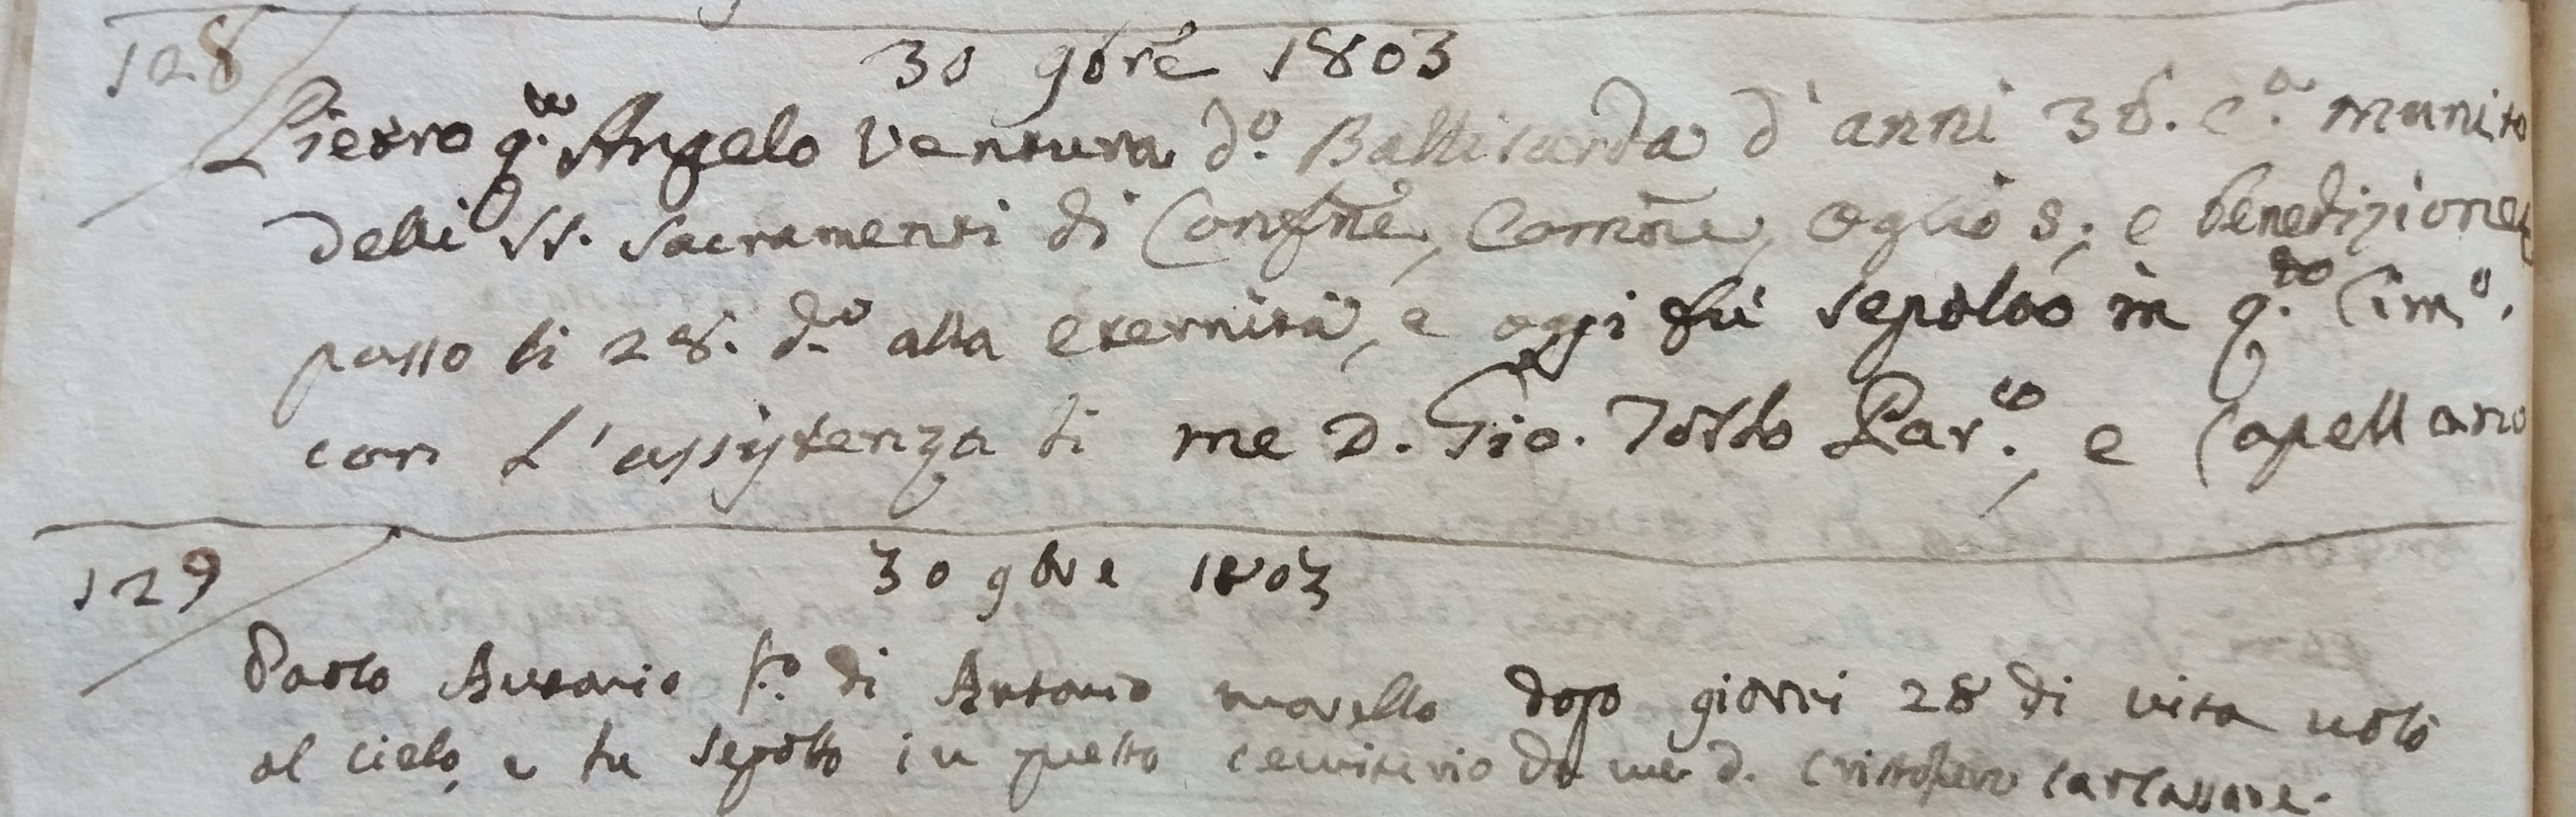 128
30 9bre 1803
Pietro q.m Angelo Ventura d.o d'anni 38. c.a munito
delli SS. Sacramenti di Confne, Comne, Oglio S; e benedizione
passo li 28. d.o alla eternità, e oggi fù sepolto in q.to Cim.o,
con L'assistenza di me D. Gio. Toldo Par.co, e Capellano
129
30 9bre 1803
Paolo Antonio f.o di Antonio morello dopo giorni 28 di vita volò
al cielo, e fu sepolto in questo cemiterio da me d. Cristoforo